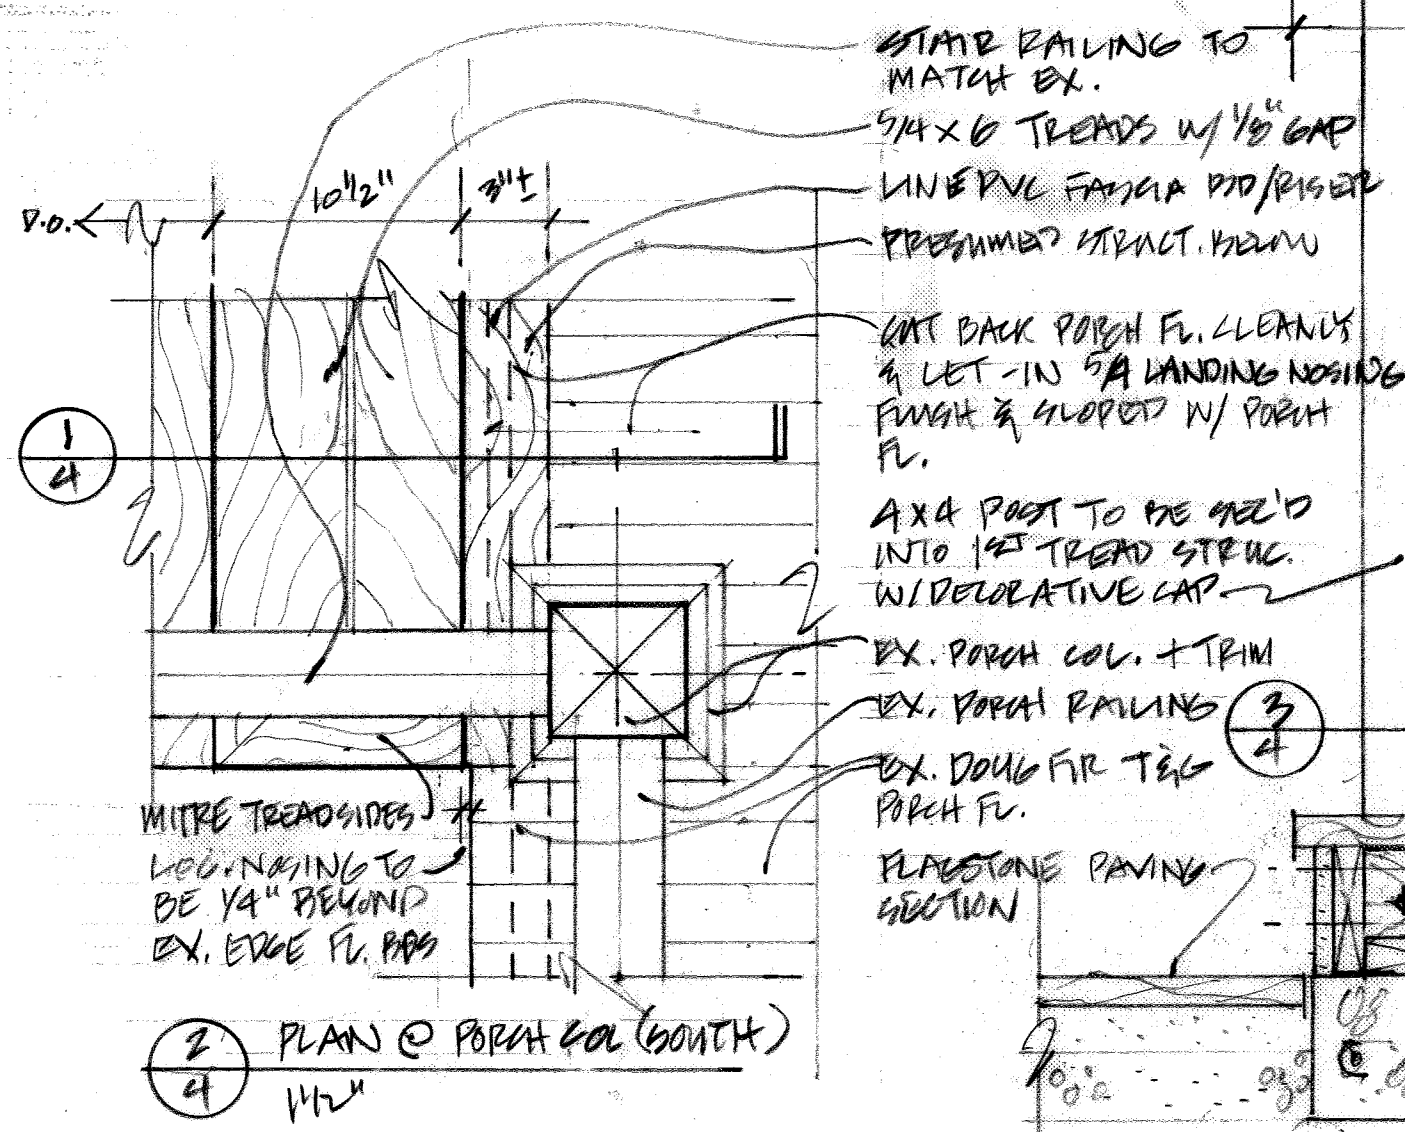 STAIR RAILING TO
MATCH EX.
5/4 X 6 TREADS W/ 1/8" GAP
LINE PVC FASCIA BD/RISER
PRESUMED STRUCT. BELOW
CUT BACK PORCH FL. CLEANLY
& LET-IN 5/4 LANDING NOSING
FLUSH & SLOPED W/ PORCH
FL.
4X4 POST TO BE SEC'D
INTO 1ST TREAD STRUC.
W/ DECORATIVE CAP
EX. PORCH COL. + TRIM
EX. PORCH RAILING
EX. DOUG FIR T&G
PORCH FL.
FLAGSTONE PAVING
SECTION
10 1/2"
3"±
D.O.
1
4
3
4
MITRE TREADSIDES
LOC. NOSING TO
BE 1/4" BEYOND
EX. EDGE FL. BDS
2
4
PLAN @ PORCH COL (SOUTH)
1 1/2"